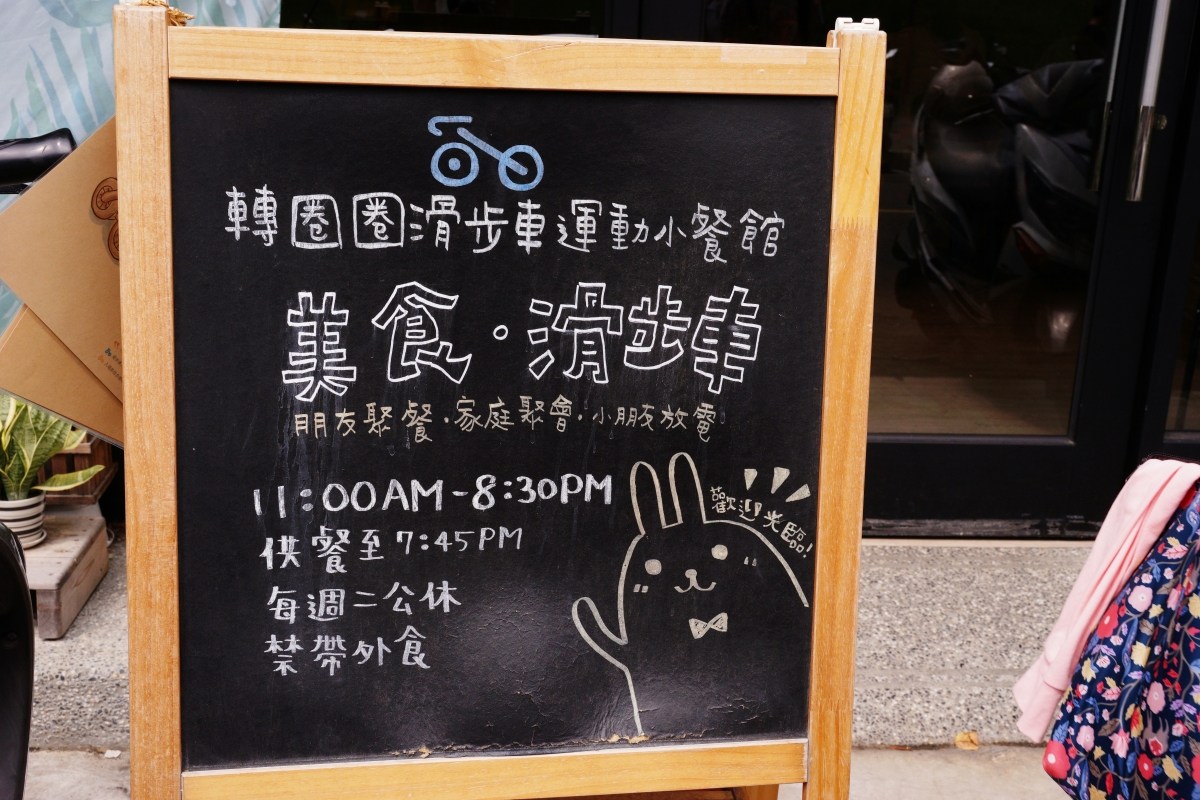 轉圈圈滑步車運動小餐館
美食·滑步車
朋友聚餐·家庭聚會·小朋友放電
11:00AM-8:30PM
歡迎光臨!
供餐至 7:45PM
每週二公休
禁帶外食